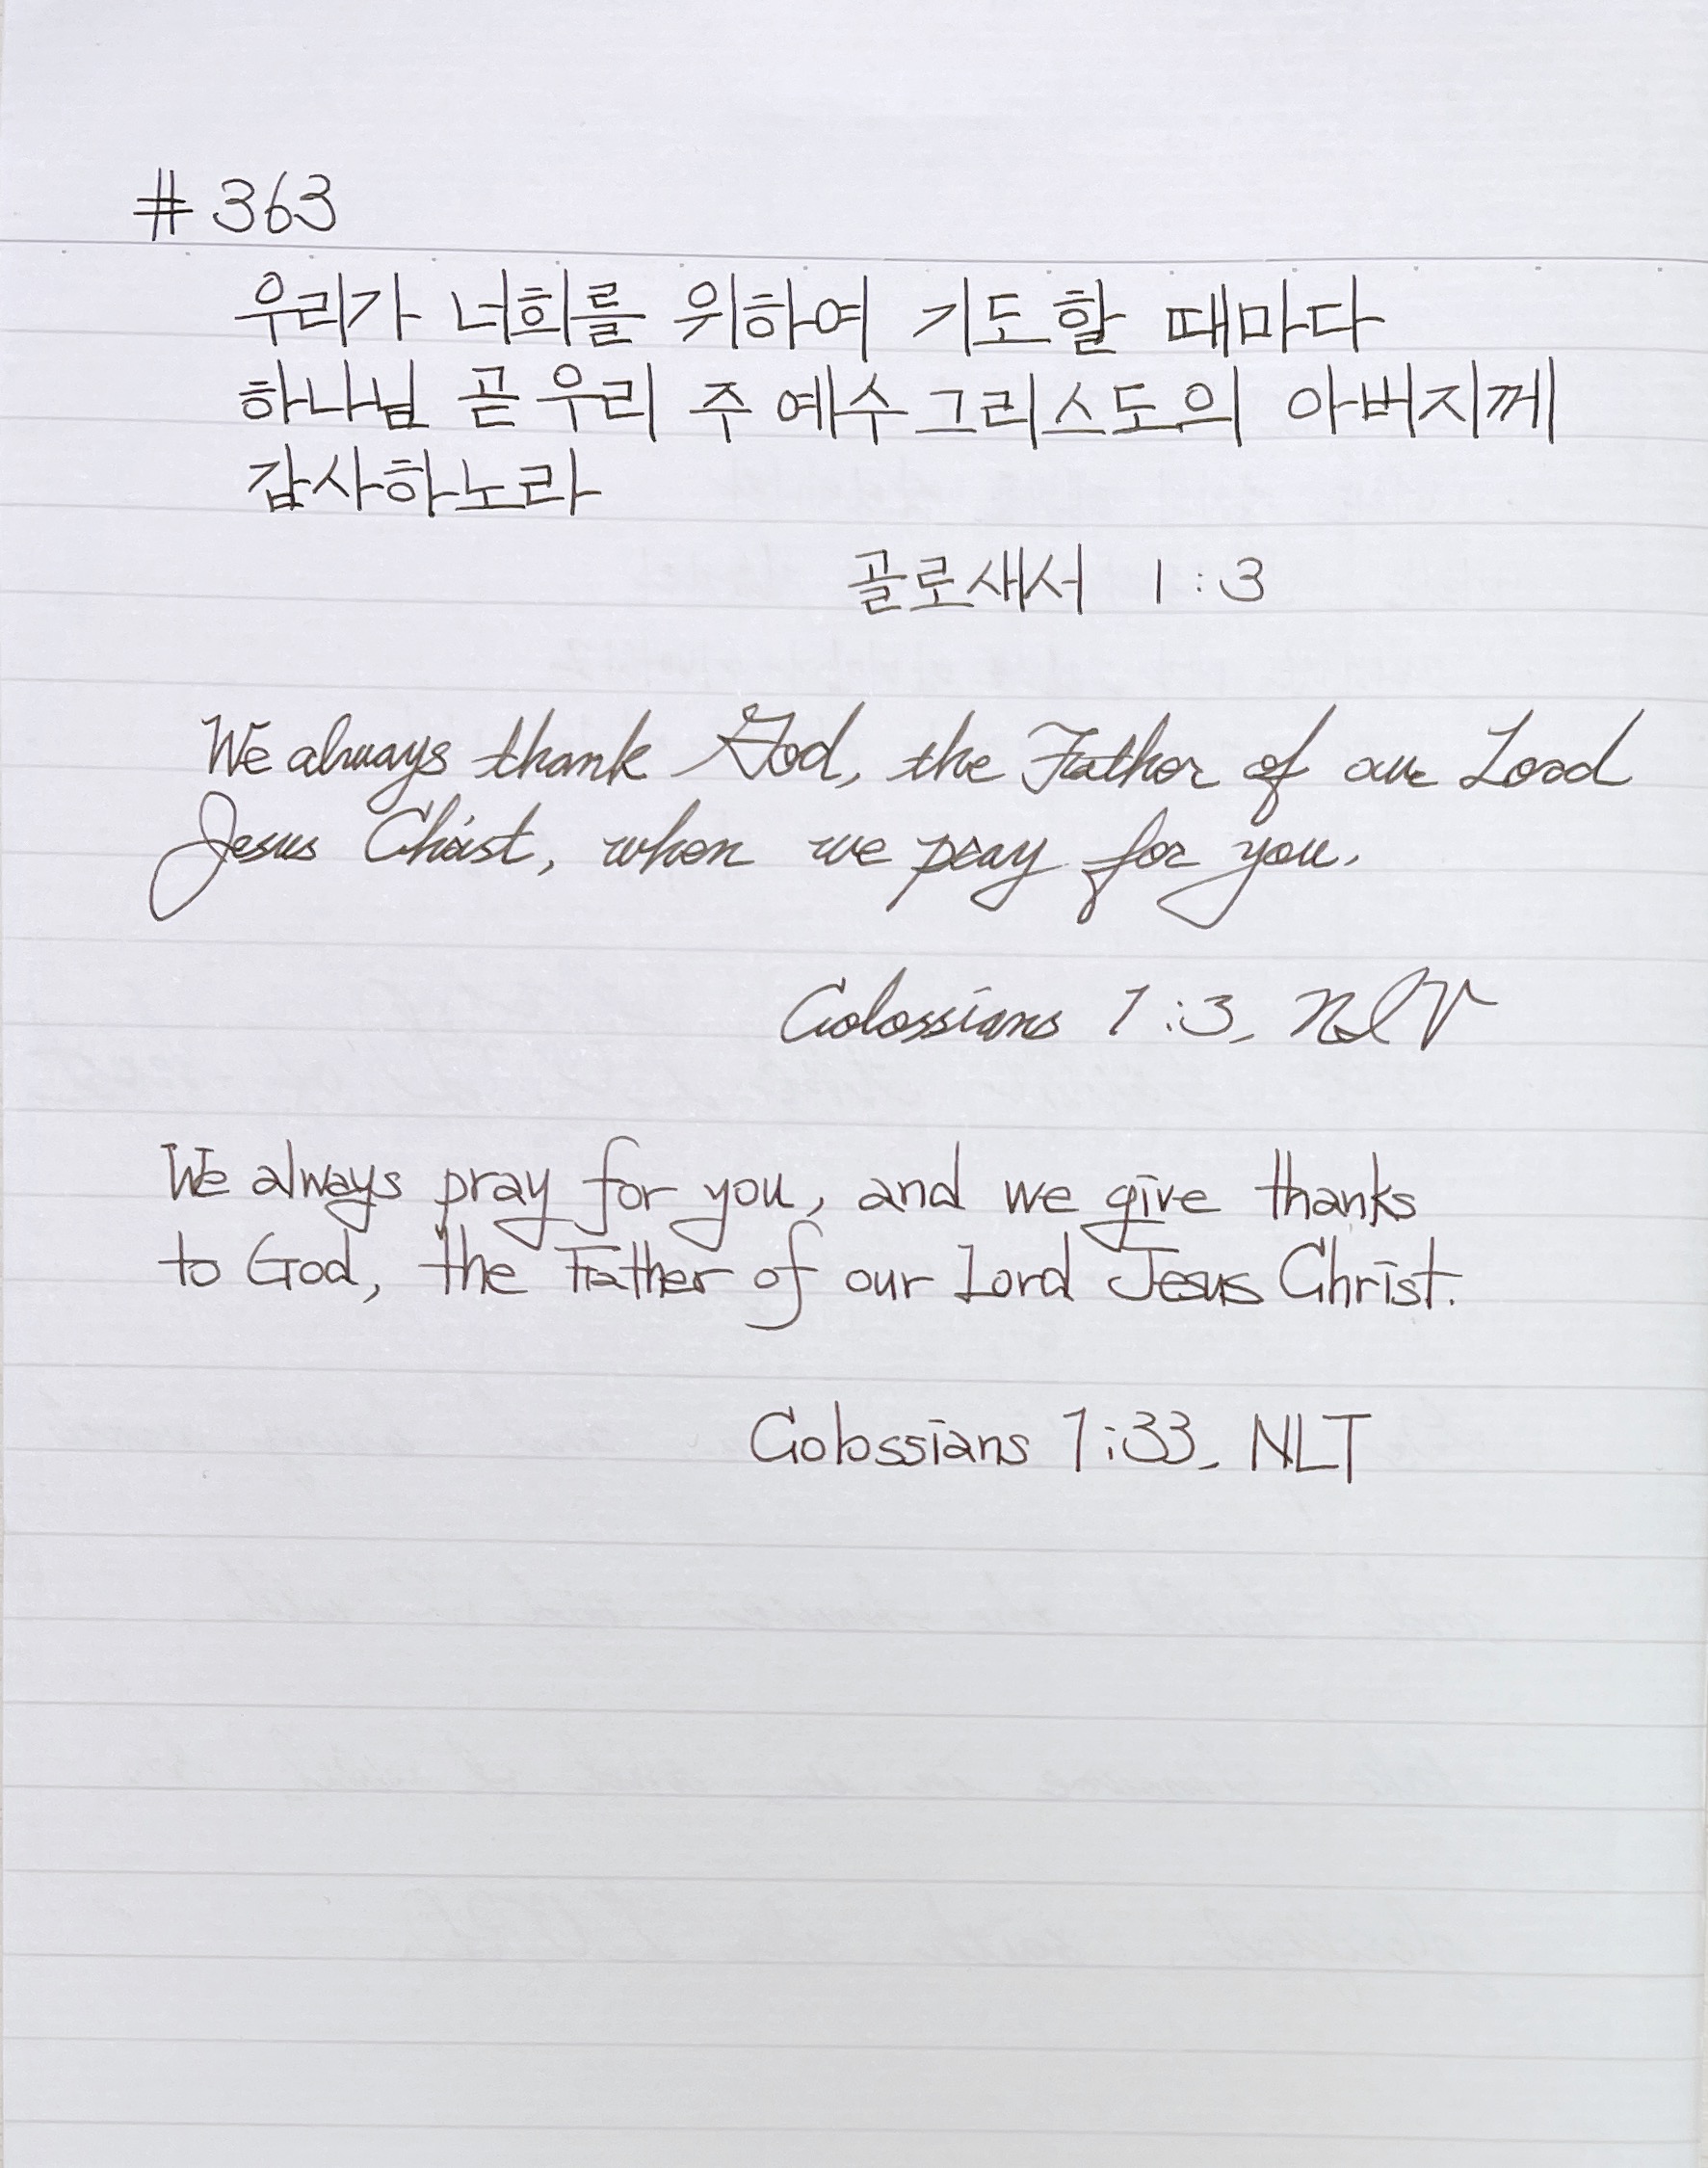 # 363
우리가 너희를 위하여 기도할 때마다
하나님 곧 우리 주 예수 그리스도의 아버지께
감사하노라
골로새서 1:3
We always thank God, the Father of our Lord
Jesus Christ, when we pray for you.
Colossians 1:3, NIV
We always pray for you, and we give thanks
to God, the Father of our Lord Jesus Christ.
Colossians 1:33, NLT